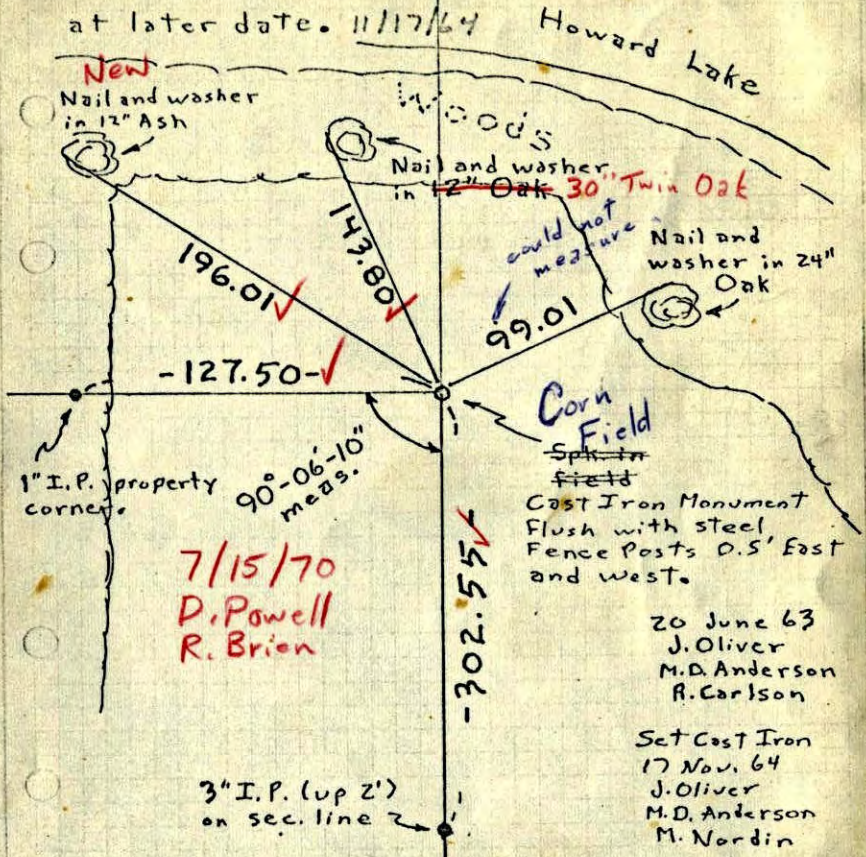 at later date. 11/17/64
Howard Lake
New
Nail and washer
in 12" Ash
Woods
Nail and washer
in 12" Oak 30" Twin Oak
could not
measure
Nail and
washer in 24"
Oak
196.01✓
143.80✓
99.01
-127.50-✓
1" I.P. property
corner.
90°-06'-10"
meas.
Corn
Field
Spk. in
Field
Cast Iron Monument
Flush with steel
Fence Posts 0.5' East
and west.
7/15/70
D. Powell
R. Brien
-302.55-✓
20 June 63
J. Oliver
M.D. Anderson
R. Carlson
Set Cast Iron
17 Nov. 64
J. Oliver
M.D. Anderson
M. Nordin
3" I.P. (up 2')
on sec. line